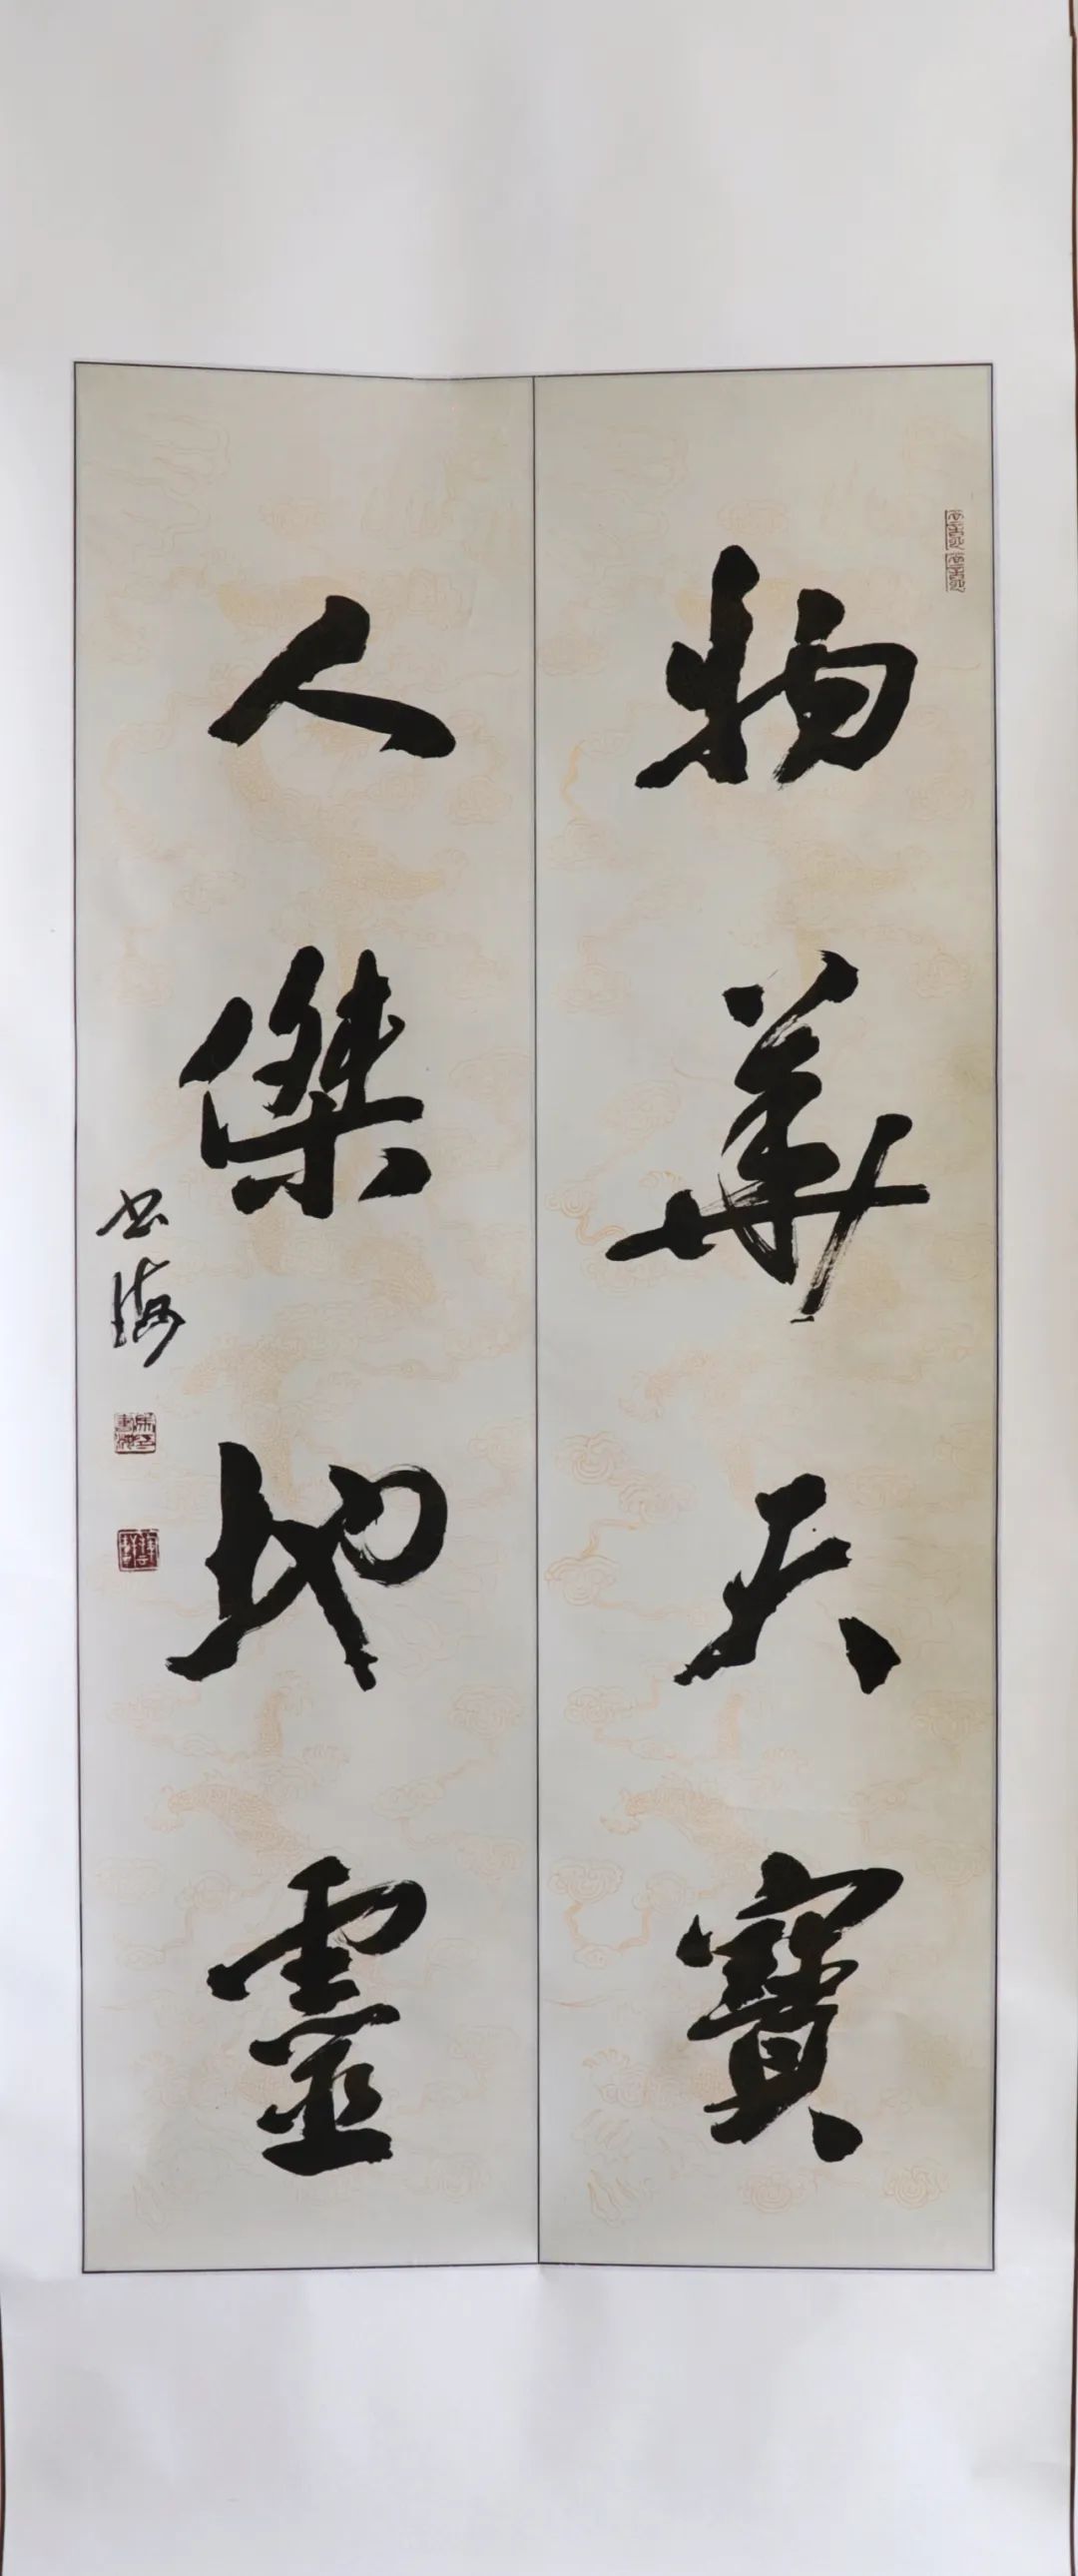 物華天寶
人傑地靈
书海